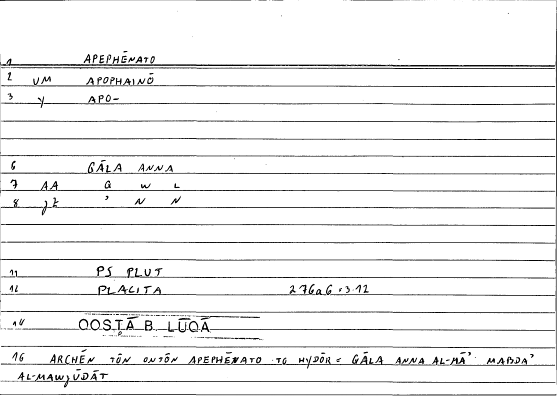 1 APEPHĒNATO
2 VM APOPHAINŌ
3 y APO-
6 GĀLA ANNA
7 AA G W L
8 jz ' N N
11 PS PLUT
12 PLACITA 276a6 = 3.12
14 QOSṬĀ B. LŪQĀ
16 ARCHĒN TŌN ONTŌN APEPHĒNATO TO HYDŌR = GĀLA ANNA AL-MĀ' MABDA'
AL-MAWJŪDĀT